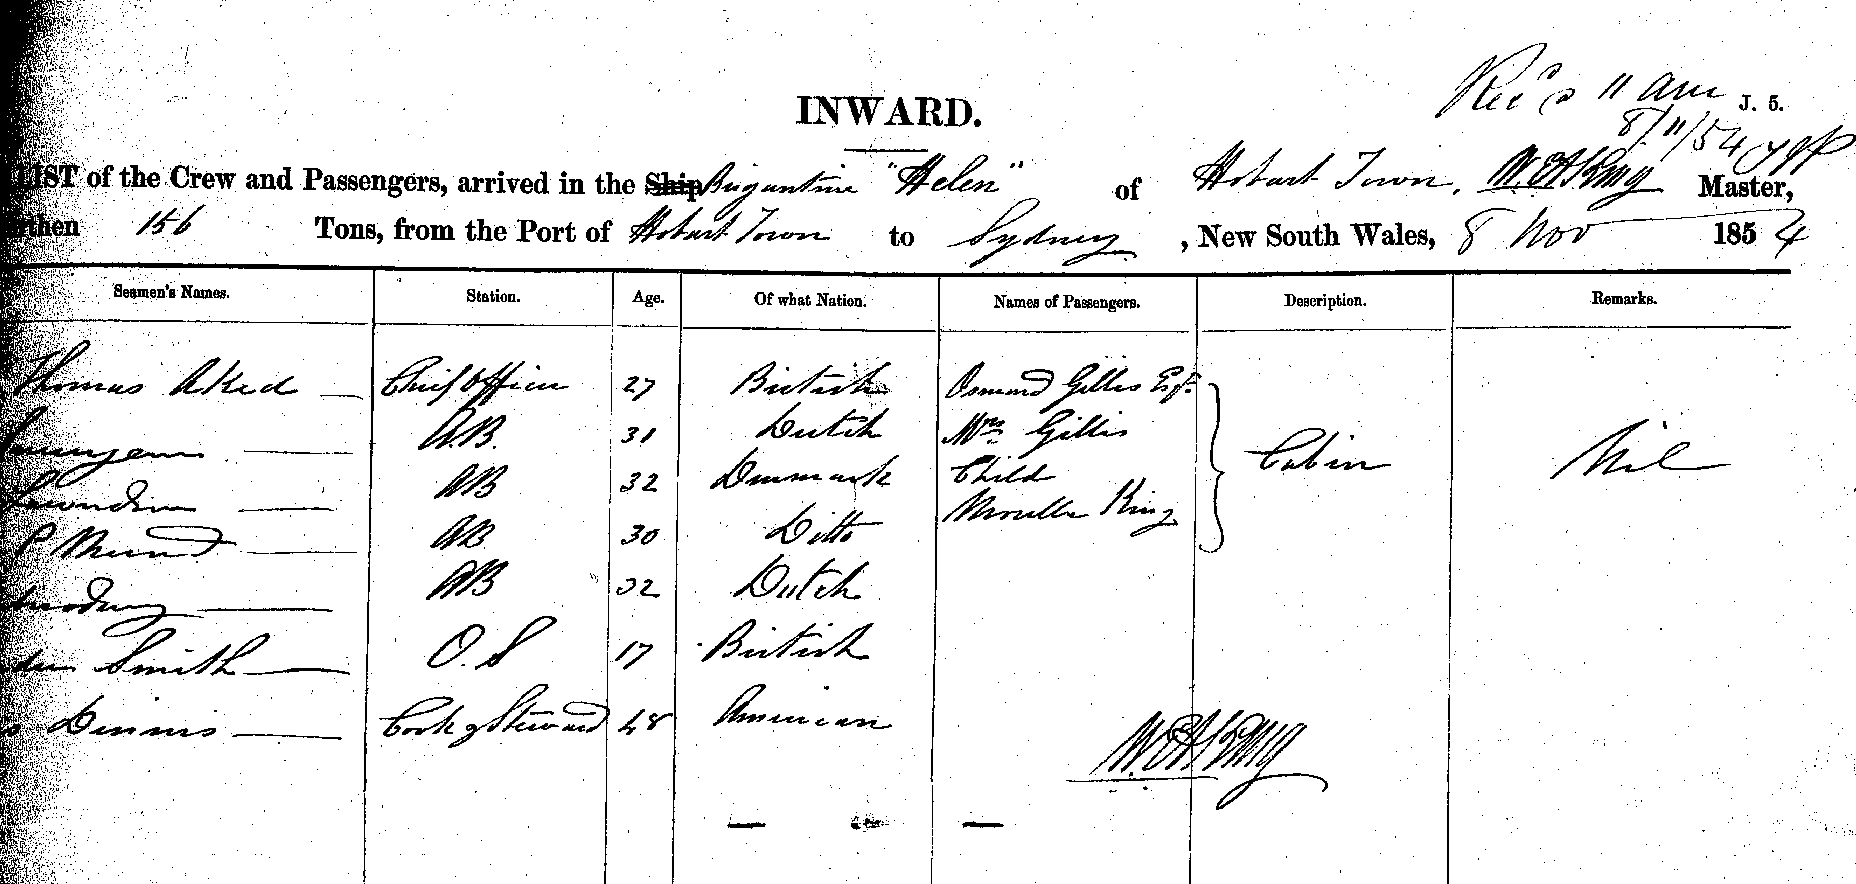 Rec'd 11 am J. 5.
8/11/54
INWARD.
LIST of the Crew and Passengers, arrived in the Ship Brigantine "Helen" of Hobart Town, W.H. King Master,
then 156 Tons, from the Port of Hobart Town to Sydney, New South Wales, 8 Nov 1854
Seamen's Names. Station. Age. Of what Nation. Names of Passengers. Description. Remarks.
Thomas Aked — Chief Officer 27 British Osmond Gilles Esqr.
— A.B. 31 Dutch Mrs Gilles
— AB 32 Denmark Child Cabin Nil
P — AB 30 Ditto King
— AB 32 Dutch
Smith — O.S 17 British
Dennis — Cook & Steward 48 American
King